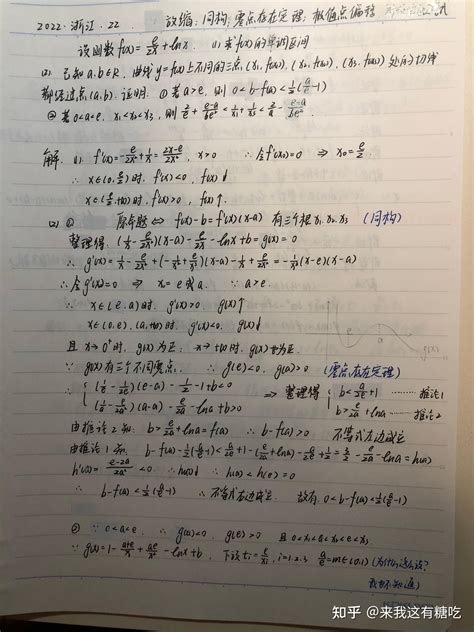 2022·浙江·22 放缩;同构;零点存在定理;极值点偏移
设函数f(x)=e/2x+lnx. (1)求f(x)的单调区间
(2) 已知a,b∈R,曲线y=f(x)上不同的三点(x₁,f(x₁)),(x₂,f(x₂)),(x₃,f(x₃))处的切线
都经过点(a,b).证明:①若a>e,则0<b-f(a)<½(a/e-1)
②若0<a<e,x₁<x₂<x₃,则2/e+(e-a)/6e²<1/x₁+1/x₃<2/a-(e-a)/6e²
解:(1) f'(x)=-e/2x²+1/x=(2x-e)/2x², x>0 ∴令f'(x₀)=0 ⇒ x₀=e/2
∴ x∈(0,e/2)时,f'(x)<0,f(x)↓
x∈(e/2,+∞)时,f'(x)>0,f(x)↑
(2)① 原命题⇔f(x)-b=f'(x)(x-a)有三个根x₁,x₂,x₃ (同构)
整理得(1/x-e/2x²)(x-a)-e/2x-lnx+b=g(x)=0
∴ g'(x)=1/x-e/2x²+(-1/x²+e/x³)(x-a)-1/x+e/2x²=-1/x³(x-e)(x-a)
∴令g'(x)=0 ⇒ x=e或a. ∵a>e.
∴ x∈(e,a)时,g'(x)>0,g(x)↑
x∈(0,e),(a,+∞)时,g'(x)<0,g(x)↓
且x→0⁺时,g(x)为正;x→+∞时,g(x)也为正.
∵g(x)有三个不同零点. ∴g(e)<0,g(a)>0 (零点存在定理)
∴ (1/e-1/2e)(e-a)-1/2-1+b<0 ⇒整理得 b<a/2e+1 —推论1
(1/a-e/2a²)(a-a)-e/2a-lna+b>0 b>e/2a+lna —推论2
由推论2知:b>e/2a+lna=f(a) ∴b-f(a)>0 不等式左边成立
由推论1知:b-f(a)-½(a/e-1)<a/2e+1-(e/2a+lna)-a/2e+½=3/2-e/2a-lna=h(a)
h'(a)=(e-2a)/2a²<0 ∴h(a)↓ ∴h(a)<h(e)=0
∴ b-f(a)<½(a/e-1) ∴不等式右边成立 故有0<b-f(a)<½(a/e-1)
② ∵0<a<e ∴g(a)<0,g(e)>0 且0<x₁<a<x₂<e<x₃
∵g(x)=1-(a+e)/x+ae/2x²-lnx+b,下设tᵢ=e/xᵢ,i=1,2,3 a/e=m∈(0,1) (为什么这么设?
我也不知道)
知乎 @来我这有糖吃